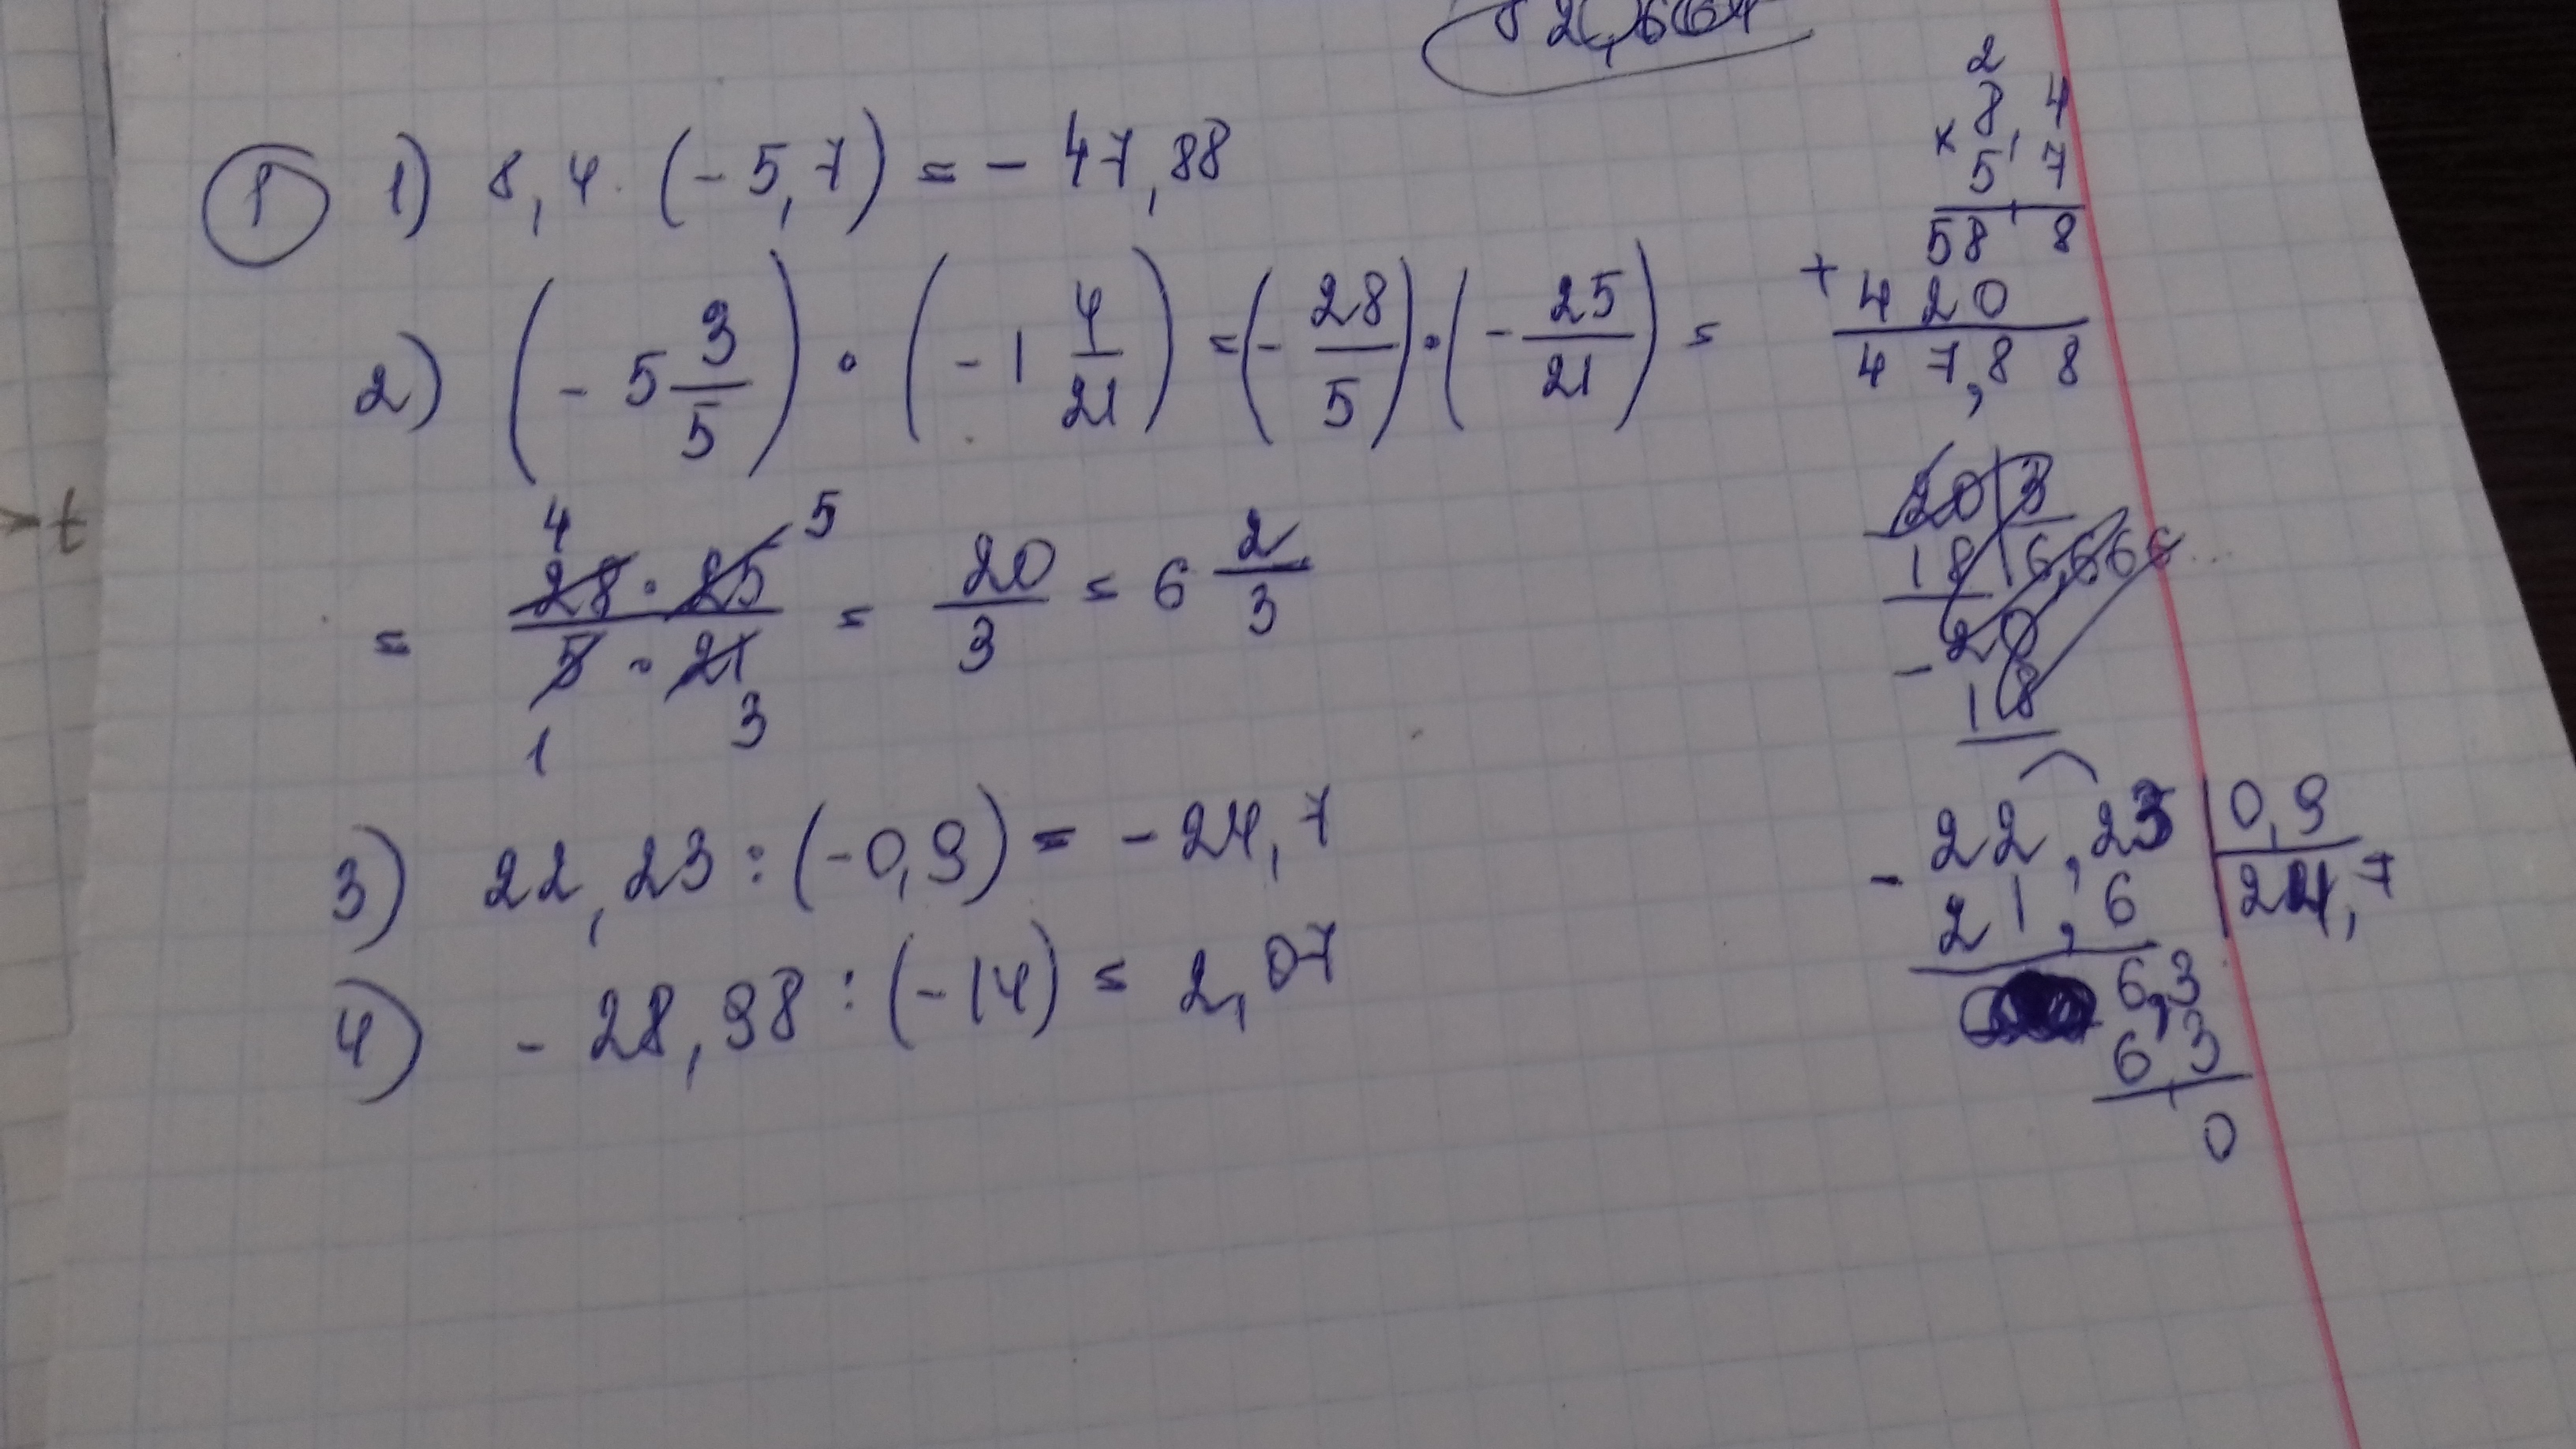 1) 8,4 · (-5,7) = - 47,88
2) (- 5 3/5) · (- 1 4/21) = (- 28/5) · (- 25/21) =
4 5
= 28 · 25 / 5 · 21 = 20/3 = 6 2/3
1 3
3) 22,23 : (-0,9) = - 24,7
4) - 28,98 : (-14) = 2,07
2
8,4
× 5,7
58 8
+ 4 2 0
4 7,8 8
20 3
18 6,666...
- 20
18
- 22,23 0,9
21,6 24,7
6,3
6,3
0
t